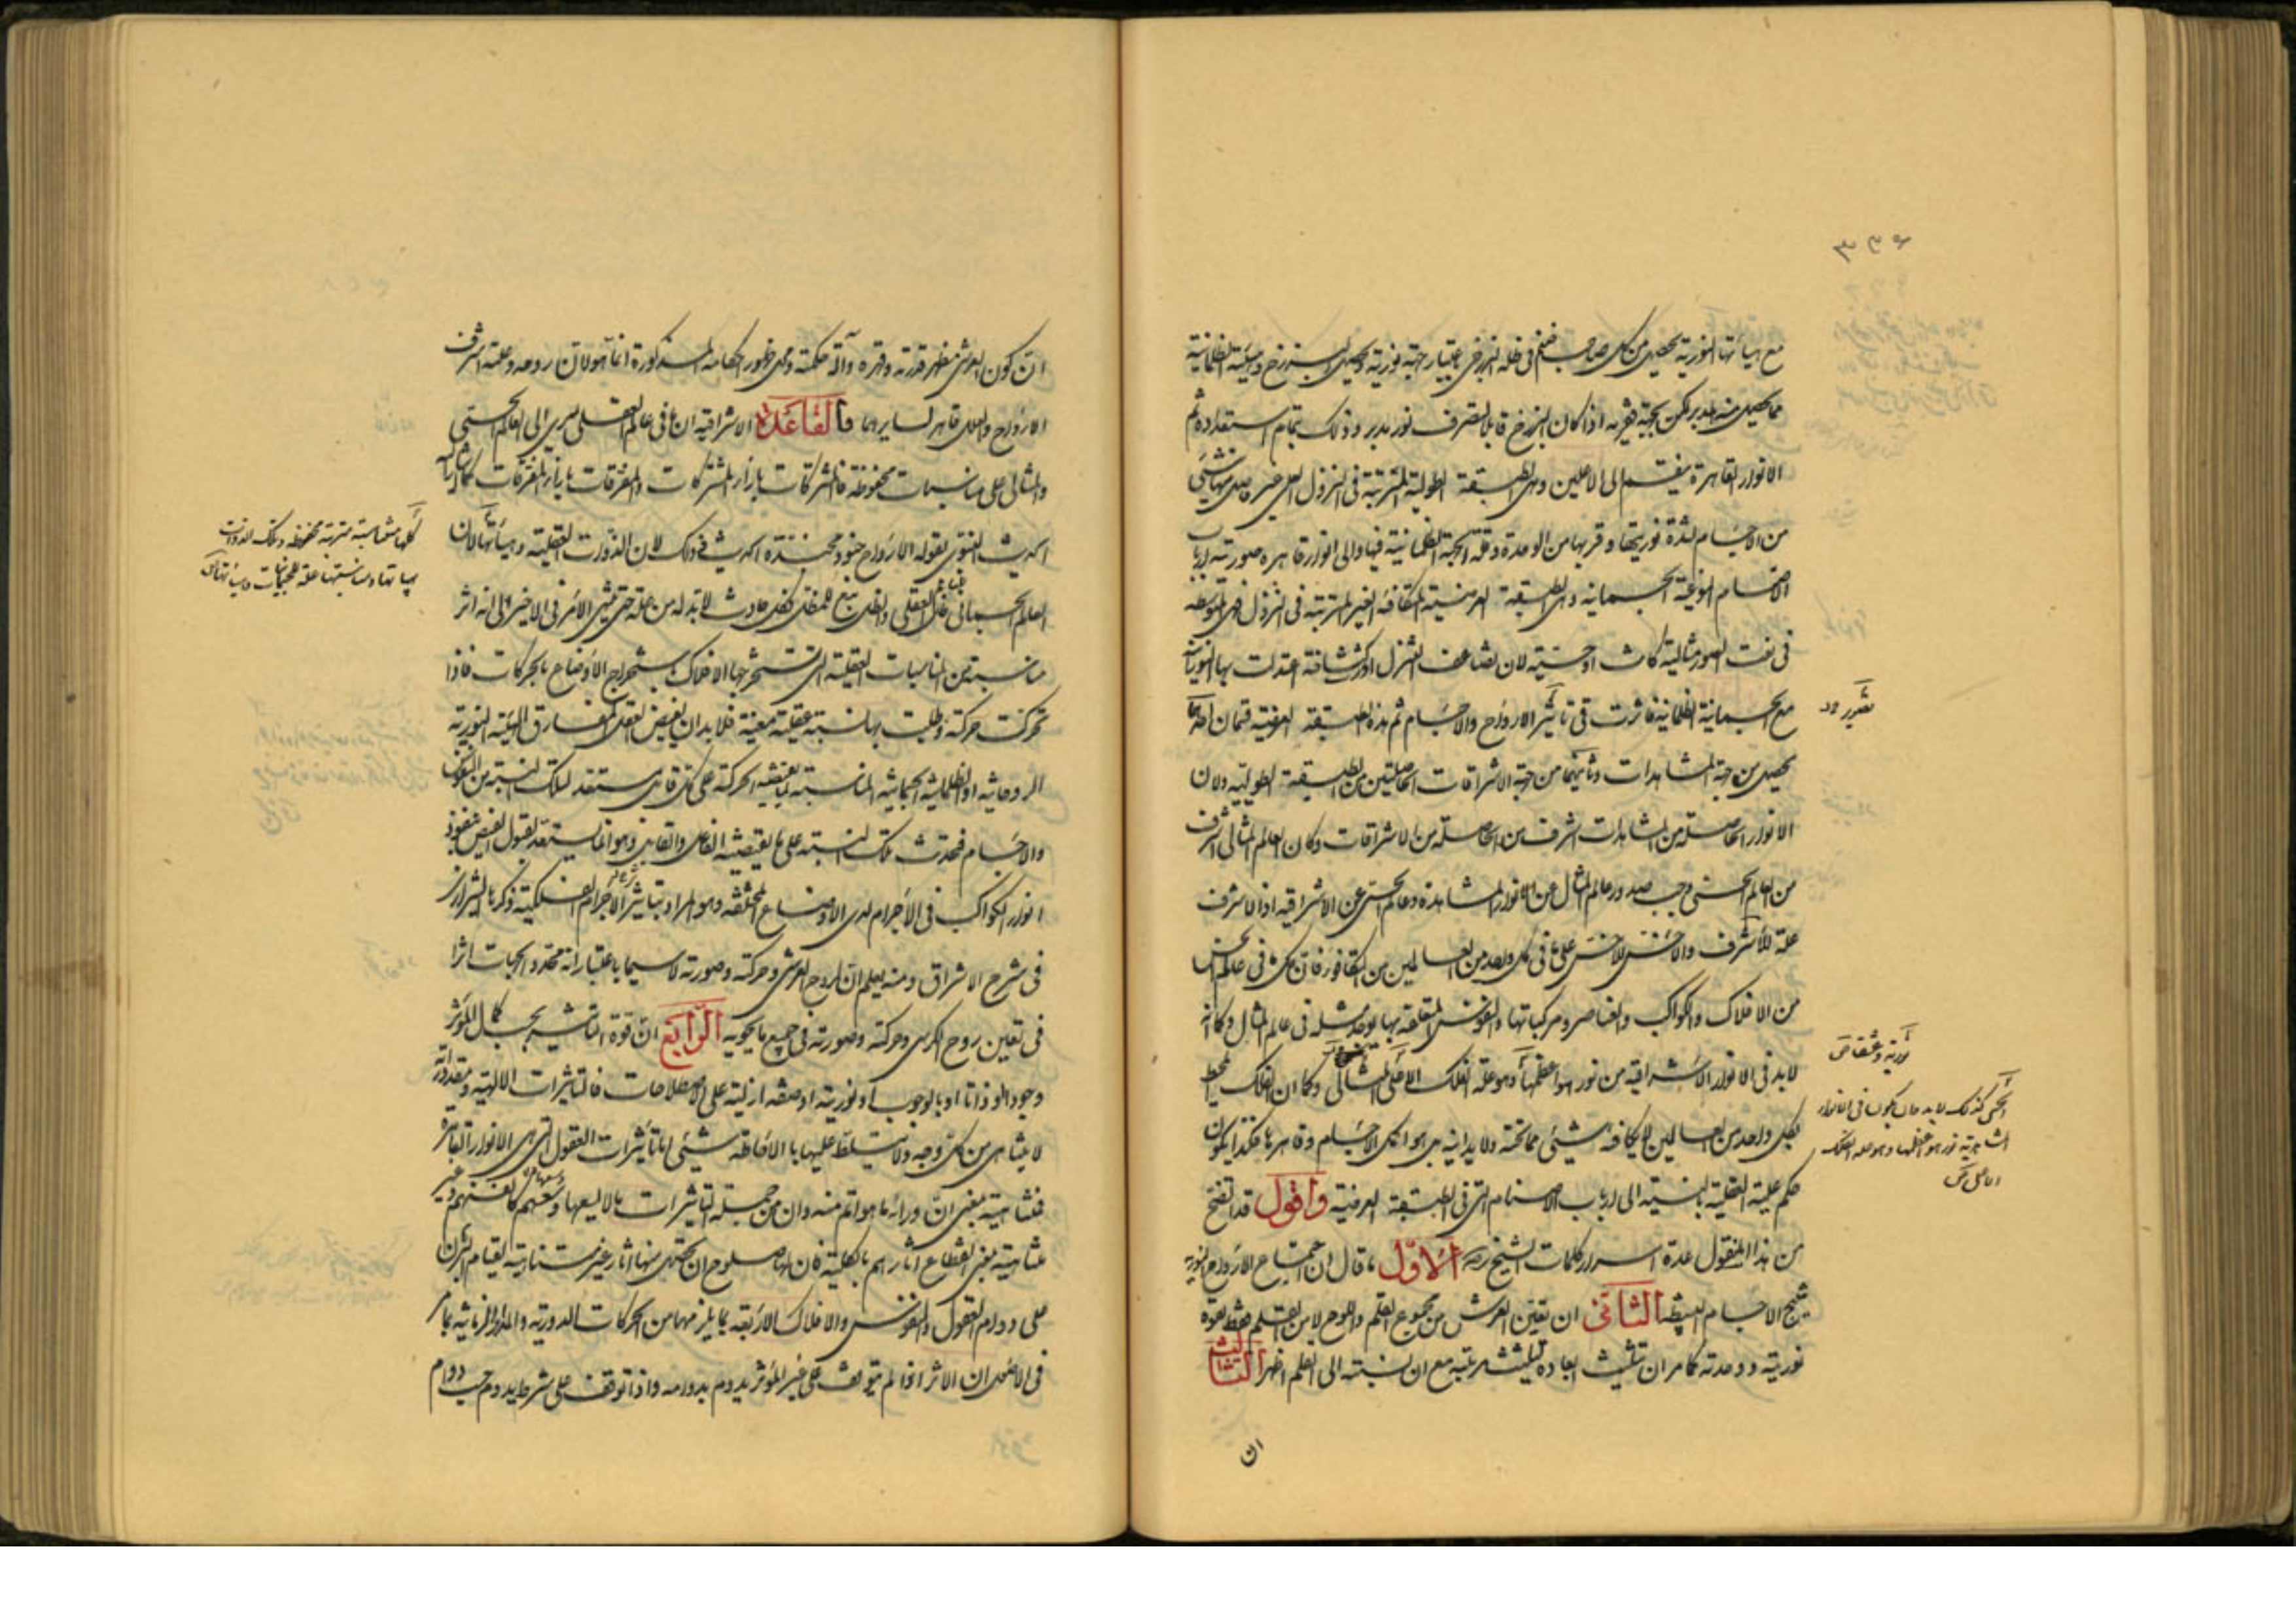 ٣٣٦
مع هيأتها النورية يحصل من كل صاحب صنم في ظله البرزخي باعتبار جهة نورية ويحصل البرزخ وهيئته الظلمانية
مما يحصل منه المدبر لكن بجهة فقرية اذا كان البرزخ قابلا لتصرف نور مدبر وذلك بتمام استعداده ثم
الانوار القاهرة ينقسم الى الاعلين وهي الطبقة الطولية المترتبة في النزول العلي غير حاصل منها شيئ
من الاجسام لشدة نوريتها وقربها من الوحدة وقلة الجهة الظلمانية فيها والى انوار قاهره صورية ارباب
الاصنام النوعية الجسمانيه وهي الطبقة العرضية المتكافئة الغير المترتبة في النزول هي المتوسطة
في نعت الصور مثالية كانت او حسية لان تضاعف التنزل اورث كثافة اعتدلت بها النوريات
مع الجسمانية الظلمانية فاثرت في تأثير الارواح والاجسام ثم هذه الطبقة العرضية قسمان احدهما
يحصل من جهة المشاهدات وثانيهما من جهة الاشراقات الحاصلتين من الطبقة الطولية ولان
الانوار الحاصلة من المشاهدات اشرف من الحاصلة من الاشراقات وكان العالم المثالي اشرف
من العالم الحسي وجب صدور عالم المثال عن الانوار المشاهدة وعالم الحس عن الاشراقية اذ الاشرف
علة للأشرف والاخس للاخس على ما في كل واحد من العالمين من التكافؤ فان كل ما في عالم الحس
من الافلاك والكواكب والعناصر ومركباتها والنفوس المتعلقة بها يوجد مثله في عالم المثال وكما انه
لابد في الانوار الاشراقية من نور هو اعظمها وهو علة الفلك الاعلى المثالي وكما ان الفلك المحيط
بكل واحد من العالمين لا يكافئه شيئ مما تحته ولا يدانيه بل هو اكمل الاجسام وقاهرها فكذا يكون
حكم علته العقلية بالنسبة الى ارباب الاصنام التي في الطبقة العرضية واقول قد اتضح
من هذا المنقول عدة اسرار كلمات الشيخ رحمه الأول ما قال ان اجتماع الارواح النورية
ينتج الاجسام البسيطة الثاني ان تعين العرش من مجموع القلم واللوح لا من القلم فقط لقوة
نوريته ووحدته كما مر ان تثليث ابعاده لتثليث مرتبته مع ان نسبته الى القلم اظهر الثالث
ان
نورية وعشقا ص
الحسي كذلك لابد وان يكون في الانوار
المشاهدية نور هو اعظمها وهو علة الفلك
الاعلى ص
ان كون العرش مظهر قدرته وقهره وآلة حكمته ومحل ظهور احكامه المذكورة انما هو لان روحه وعلته اشرف
الارواح والعلل قاهر لسايرها فالقاعدة الاشراقية ان ما في عالم العقل يسري الى العالم الحسي
والمثالي على مناسبات محفوظة فالمشتركات بازاء المشتركات والمفترقات بازاء المفترقات كما اشار
الحديث النبوي بقوله الارواح جنود مجندة الحديث وذلك لان الذوات العقلية وهيأتها لان
العالم الجسماني ظل العقلي والظل تابع للمظل فكل حادث لابد له من علة حتى ينتهي الأمر في الاخير والى انه اثر
مناسبة من المناسبات العقلية التي تستخرجها الافلاك باستخراج الأوضاع بالحركات فاذا
تحركت حركة وطلبت بها نسبة عقلية معينة فلابد ان يفيض العقل المفارق الهيئة النورية
الروحانية او الظلمانية الجسمانية المناسبة لما تقتضيه الحركة على كل قابل مستعد لتلك النسبة من النفوس
والاجسام فتحدث تلك النسبة على ما يقتضيه الفاعل والقابل وهو انما يستعد لقبول الفيض بنفوذ
انوار الكواكب في الاجرام لدى الاوضاع المختلفة وهو المراد بتأثير الأجرام الفلكية ذكره الشيرازي
في شرح الاشراق ومنه يعلم ان لروح العرش وحركته وصورته لاسيما باعتبار انه محدد الجهات اثرا
في تعين روح الكرسي وحركته وصورته في جميع ما يحويه الرابع ان قوة التأثير بحسب كمال المؤثر
وجود المؤثر ذاتا او بالوجوب او نورية او صفة ازلية على الاصطلاحات فالتأثيرات الالهية ومقدوراته
لا يتناهى من كل وجه ولا يتسلط عليها بالاحاطة شيئ اما تأثيرات العقول التي هي الانوار القاهرة
فمتناهية بمعنى ان ورائها ما هو اتم منه وان من جملة التأثيرات ما لا يسعها وسعهم كانفسهم وغير
متناهية بمعنى انقطاع اثارهم بالكلية فان لها صلوح ان يحصل منها اثار غير متناهية لقيام البرهان
على دوام العقول والنفوس والافلاك الاربعة بما يلزمها من الحركات الدورية والمدد الزمانية لما مر
في الاصول ان الاثر اذا لم يتوقف على غير المؤثر يدوم بدوامه واذا توقف على شرط يدوم حسب دوام
كلها متناسبة مترتبة محفوظة وتلك الذوات
بهيأتها ومناسبتها علة للجسمانيات وهيأتها ص